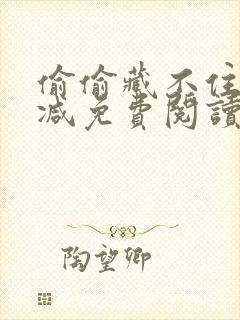 偷偷藏不住
减免費閱讀
陶望卿